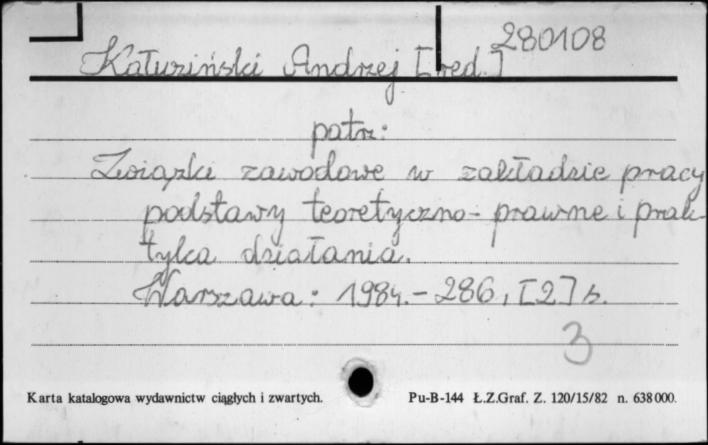 280108
Kałuziński Andrzej [red.]
patrz:
Związki zawodowe w zakładzie pracy
podstawy teoretyczno-prawne i prak-
tyka działania.
Warszawa: 1984.-286, [2] s.
3
Karta katalogowa wydawnictw ciągłych i zwartych. Pu-B-144 Ł.Z.Graf. Z. 120/15/82 n. 638000.